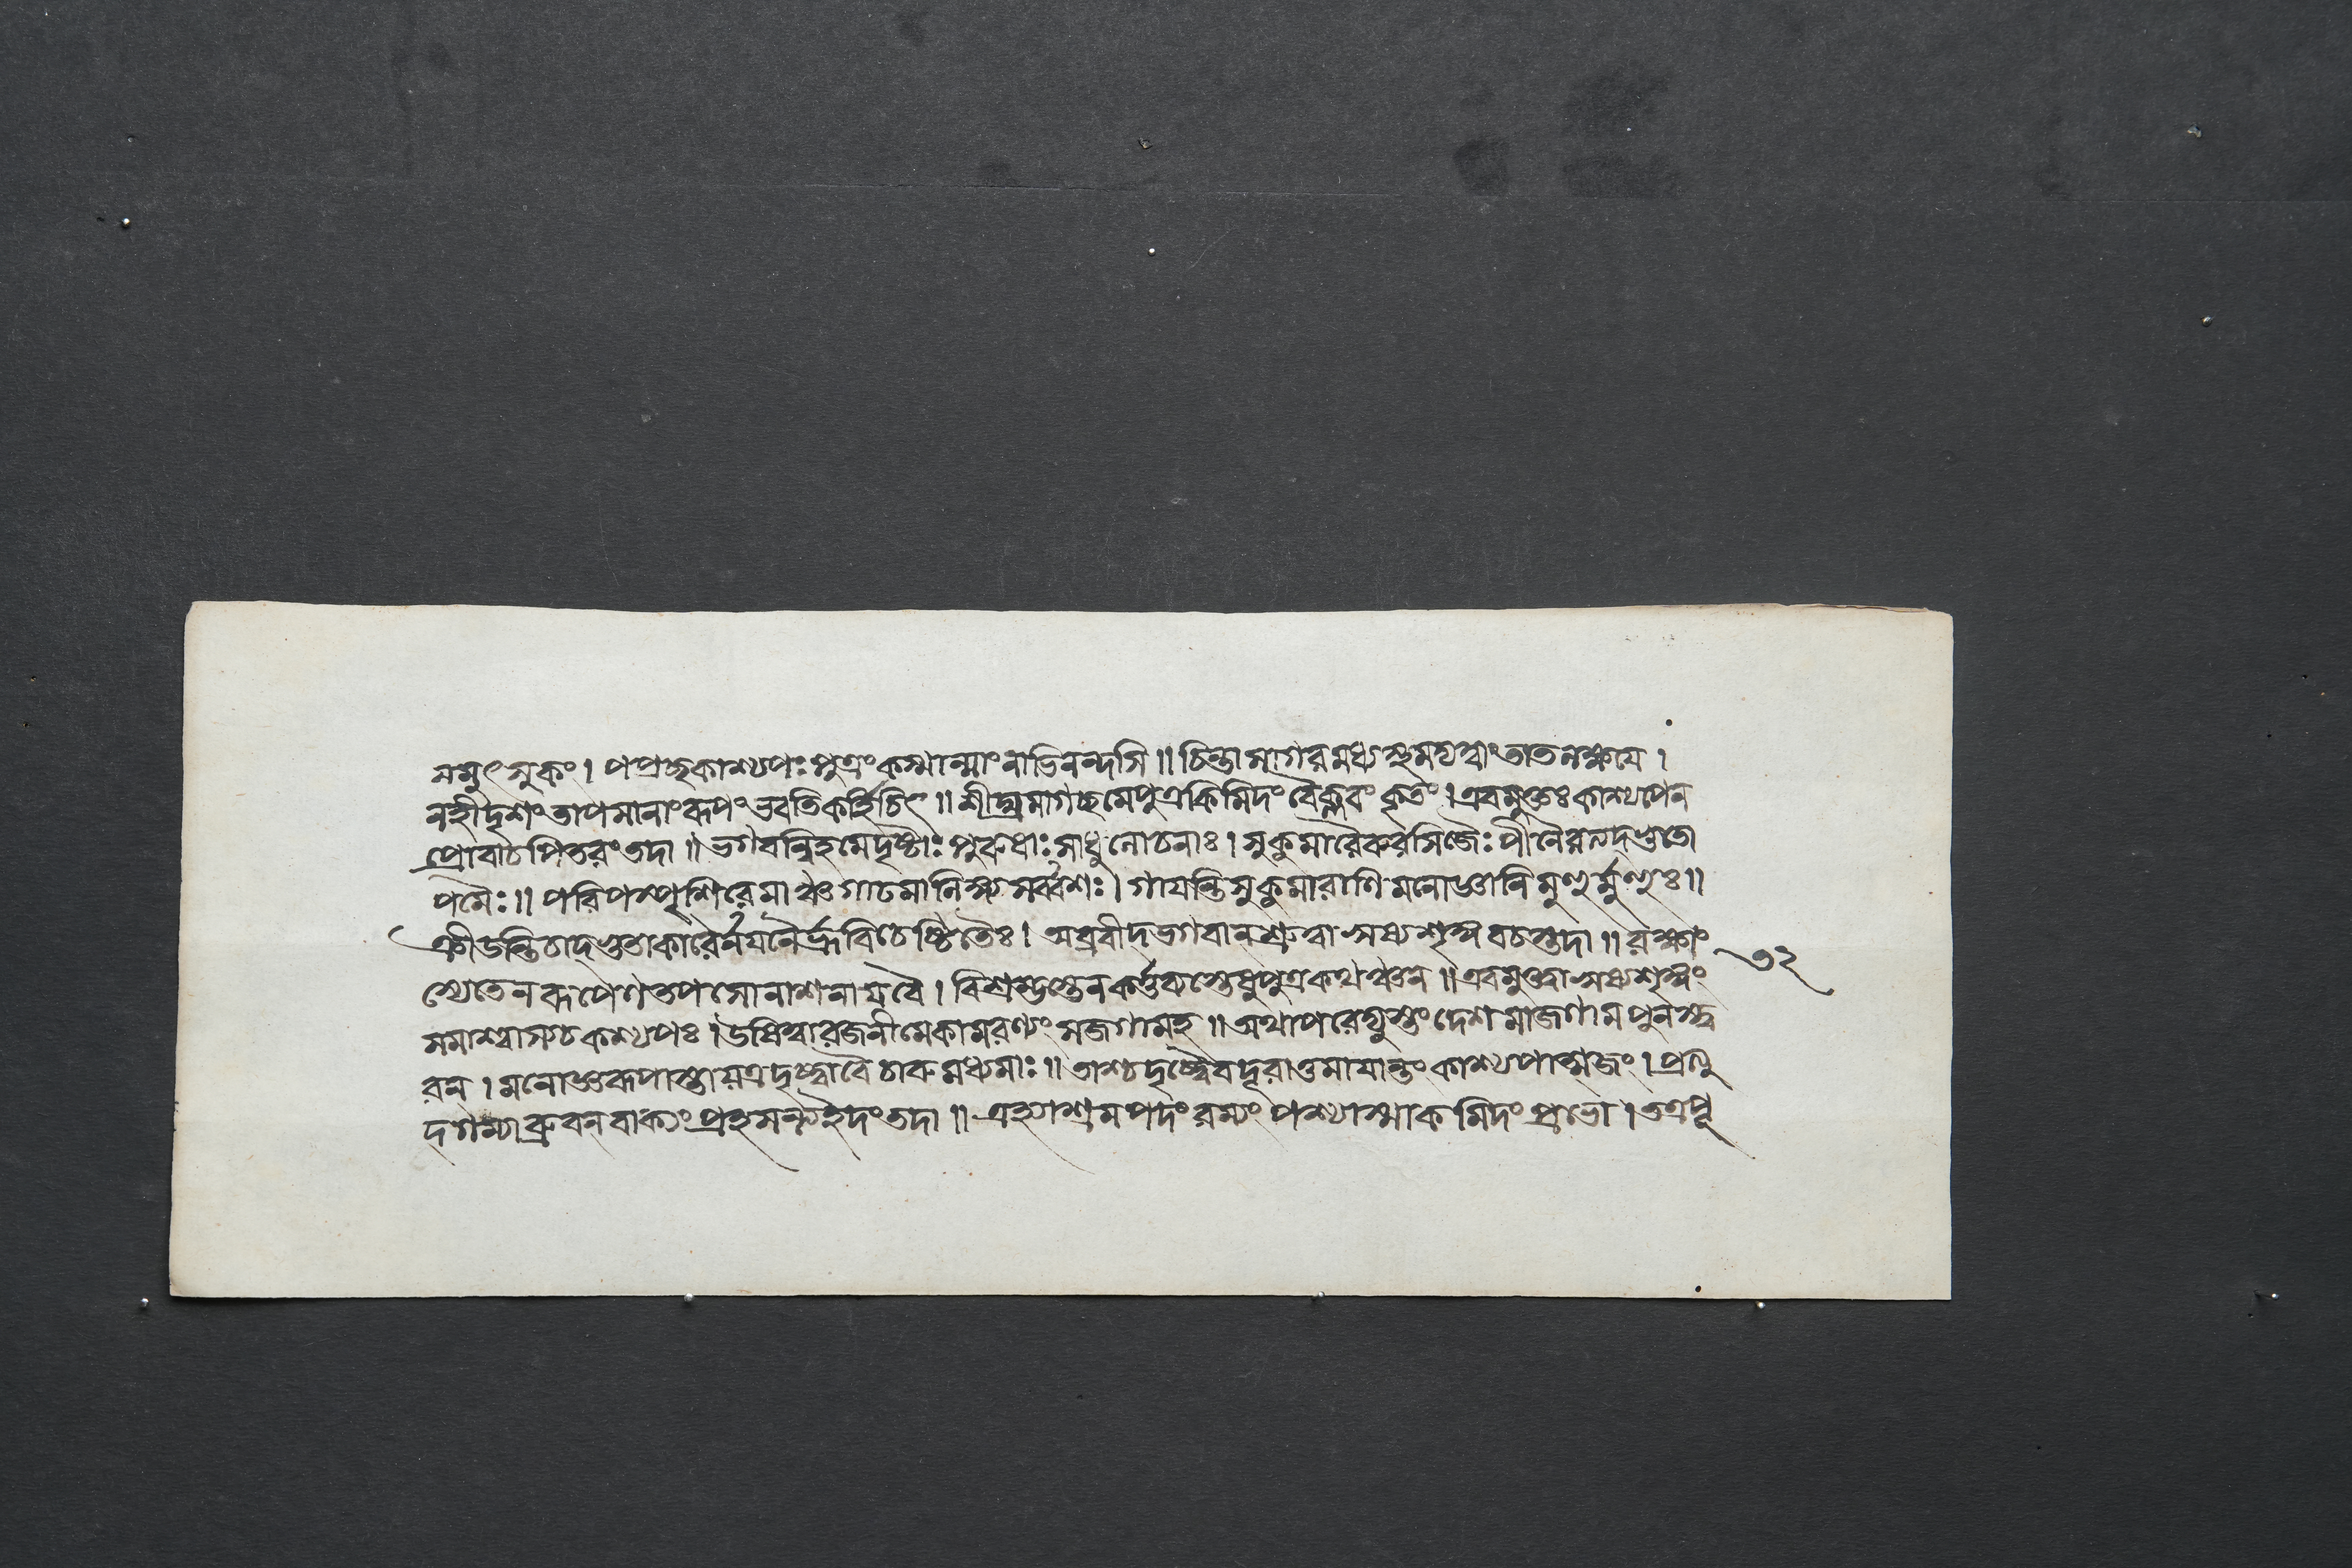 নমুৎসুকং। পপ্রচ্ছকাশ্যপঃপুত্রংকস্মান্মাংনাভিনন্দসি॥ চিন্তাসাগরমধ্যস্থমদ্যত্বাংতাতলক্ষয়ে।
নহীদৃশংতাপসানাংরূপংভবতিকর্হিচিৎ॥ শীঘ্রমাগচ্ছমেপুত্রকিমিদংবৈক্লবংকৃতং। এবমুক্তঃকাশ্যপেন
প্রোবাচপিতরংতদা॥ ভগবন্নিহমেদৃষ্টাঃপুরুষাঃসাধুলোচনাঃ। সুকুমারৈরুরসিজৈঃপীনৈরত্যদ্ভুতো
পমৈঃ॥ পরিপস্পৃশিরেমাঞ্চগাঢমালিঙ্গ্যসর্ব্বশঃ। গায়ন্তিসুকুমারাণিমনোজ্ঞানিমুহুর্মুহুঃ॥
ক্রীডন্তিচাদ্ভুতাকারৈর্নয়নৈর্ভ্রূবিচেষ্টিতৈঃ। অব্রবীদ্ভগবান্শ্রুত্বাঋষ্যশৃঙ্গবচস্তদা॥ রক্ষাং
স্যেতেনরূপেণতপসোনাশনায়বৈ। বিশ্রম্ভস্তেনকর্ত্তব্যস্তেষুপুত্রকথঞ্চন॥ এবমুক্ত্বাঋষ্যশৃঙ্গং
সমাশ্বাস্যচকশ্যপঃ। উষিত্বারজনীমেকামরণ্যংসজগামহ॥ অথাপরেদ্যুস্তংদেশমাজগামপুনস্ত্ব
রন্। মনোজ্ঞরূপাস্তায়ত্রদৃষ্ট্বাবৈচারুমধ্যমাঃ॥ তাশ্চদৃষ্ট্বৈবদূরাত্তমায়ান্তংকাশ্যপাত্মজং। প্রত্যু
দ্গম্যাব্রুবন্বাক্যংপ্রহসন্ত্যইদংতদা॥ এহ্যাশ্রমপদংরম্যংপশ্যাস্মাকমিদংপ্রভো। তত্রপূ
৩২